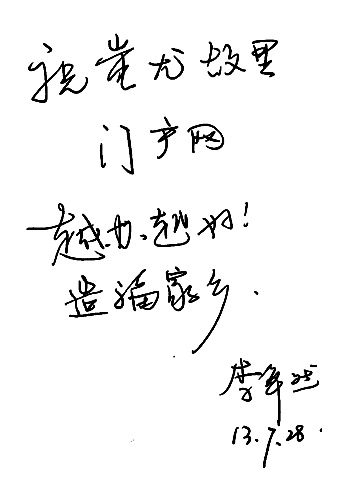 祝蚩尤故里
门户网
越办越好！
造福家乡.
李年
13.7.28.